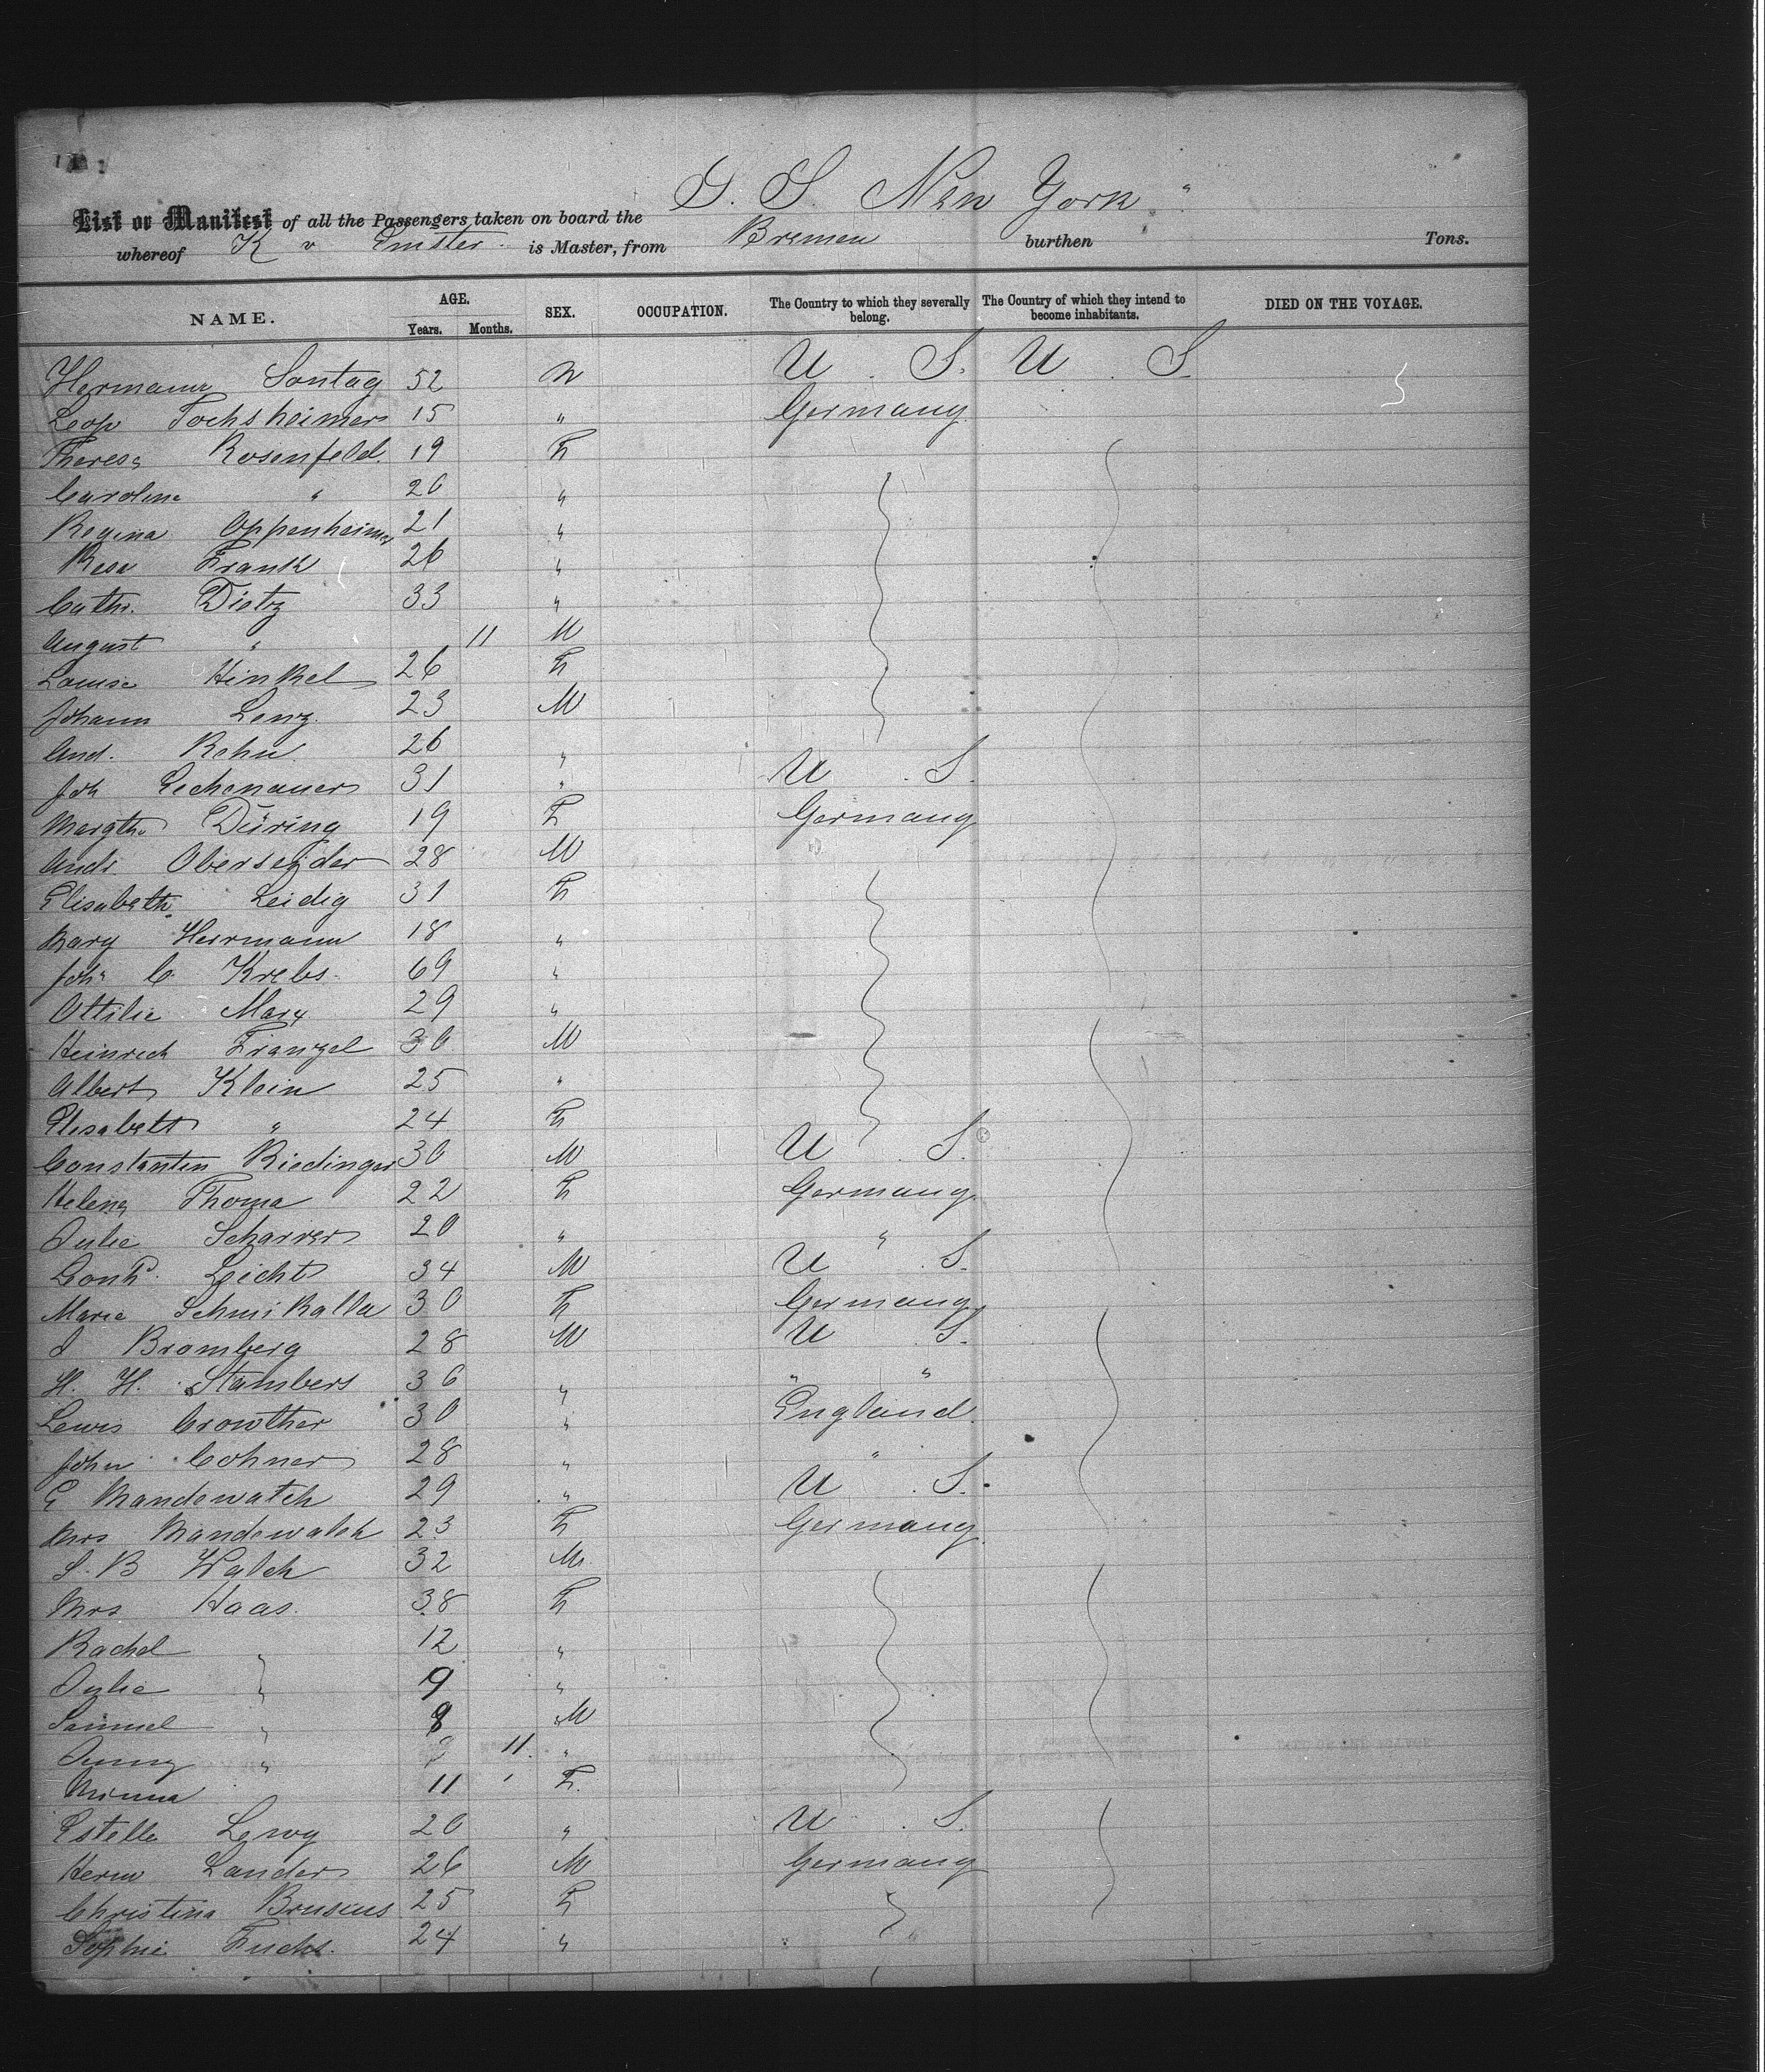 S. S. New York "
List or Manifest of all the Passengers taken on board the
whereof K v Emster is Master, from Bremen burthen Tons.
NAME. AGE. Years. Months. SEX. OCCUPATION. The Country to which they severally belong. The Country of which they intend to become inhabitants. DIED ON THE VOYAGE.
Hermann Sontag 52 M U. S. U. S
Leop 15 " Germany
Theresa Rosenfeld 19 F
Caroline " 20 "
Regina Oppenheimer 21 "
Rosa Frank 26 "
Cathr. Dietz 33 "
August " 11 M
Louise Hinkel 26 F
Johann Lenz 23 M
And. Rehn 26 "
Joh 31 " U. S.
Margth. Düring 19 F Germany
Andr. 28 M
Elisabeth Leidig 31 F
Mary Herrmann 18 "
Joh. C Krebs 69 "
Ottilie Marx 29 "
Heinrich Franzel 30 M
Albert Klein 25 "
Elisabeth " 24 F
Constantin Riedinger 30 M U. S.
Helena Thoma 22 F Germany
Julie Scharrer 20 " "
Leicht 34 M U. S.
Marie Schmikalla 30 F Germany
J Bromberg 28 M U. S.
H. H. Stambers 36 " " "
Lewis Crowther 30 " England
John Cohner 28 " "
G Mandewatch 29 " U. S.
Mrs Mandewalch 23 F Germany
S. B Walch 32 M
Mrs Haas 38 F
Rachel " 12 "
Julie " 9 "
Samuel " 8 M
Jenny " 11 "
Minna 11 ' F.
Estelle Lewy 20 " U. S.
Herm Lander 26 M Germany
Christina Bruscus 25 F
Sophie Fuchs 24 "